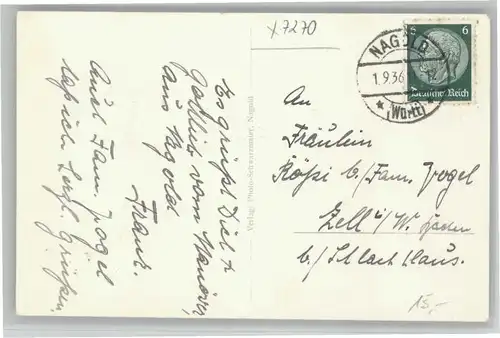 x7270
NAGOLD
1.9.36
(Württ)
6 6
Deutsches Reich
Es grüßt Dich
vom Manöver,
aus Nagold
Frank.
Auch Fam. Vogel
laß ich herzl. grüßen.
Verlag: Photo-Schwarzmaier, Nagold
An
Fräulein
b/Fam. Vogel
Zell i/W. Baden
b/Schlachthaus.
15,-